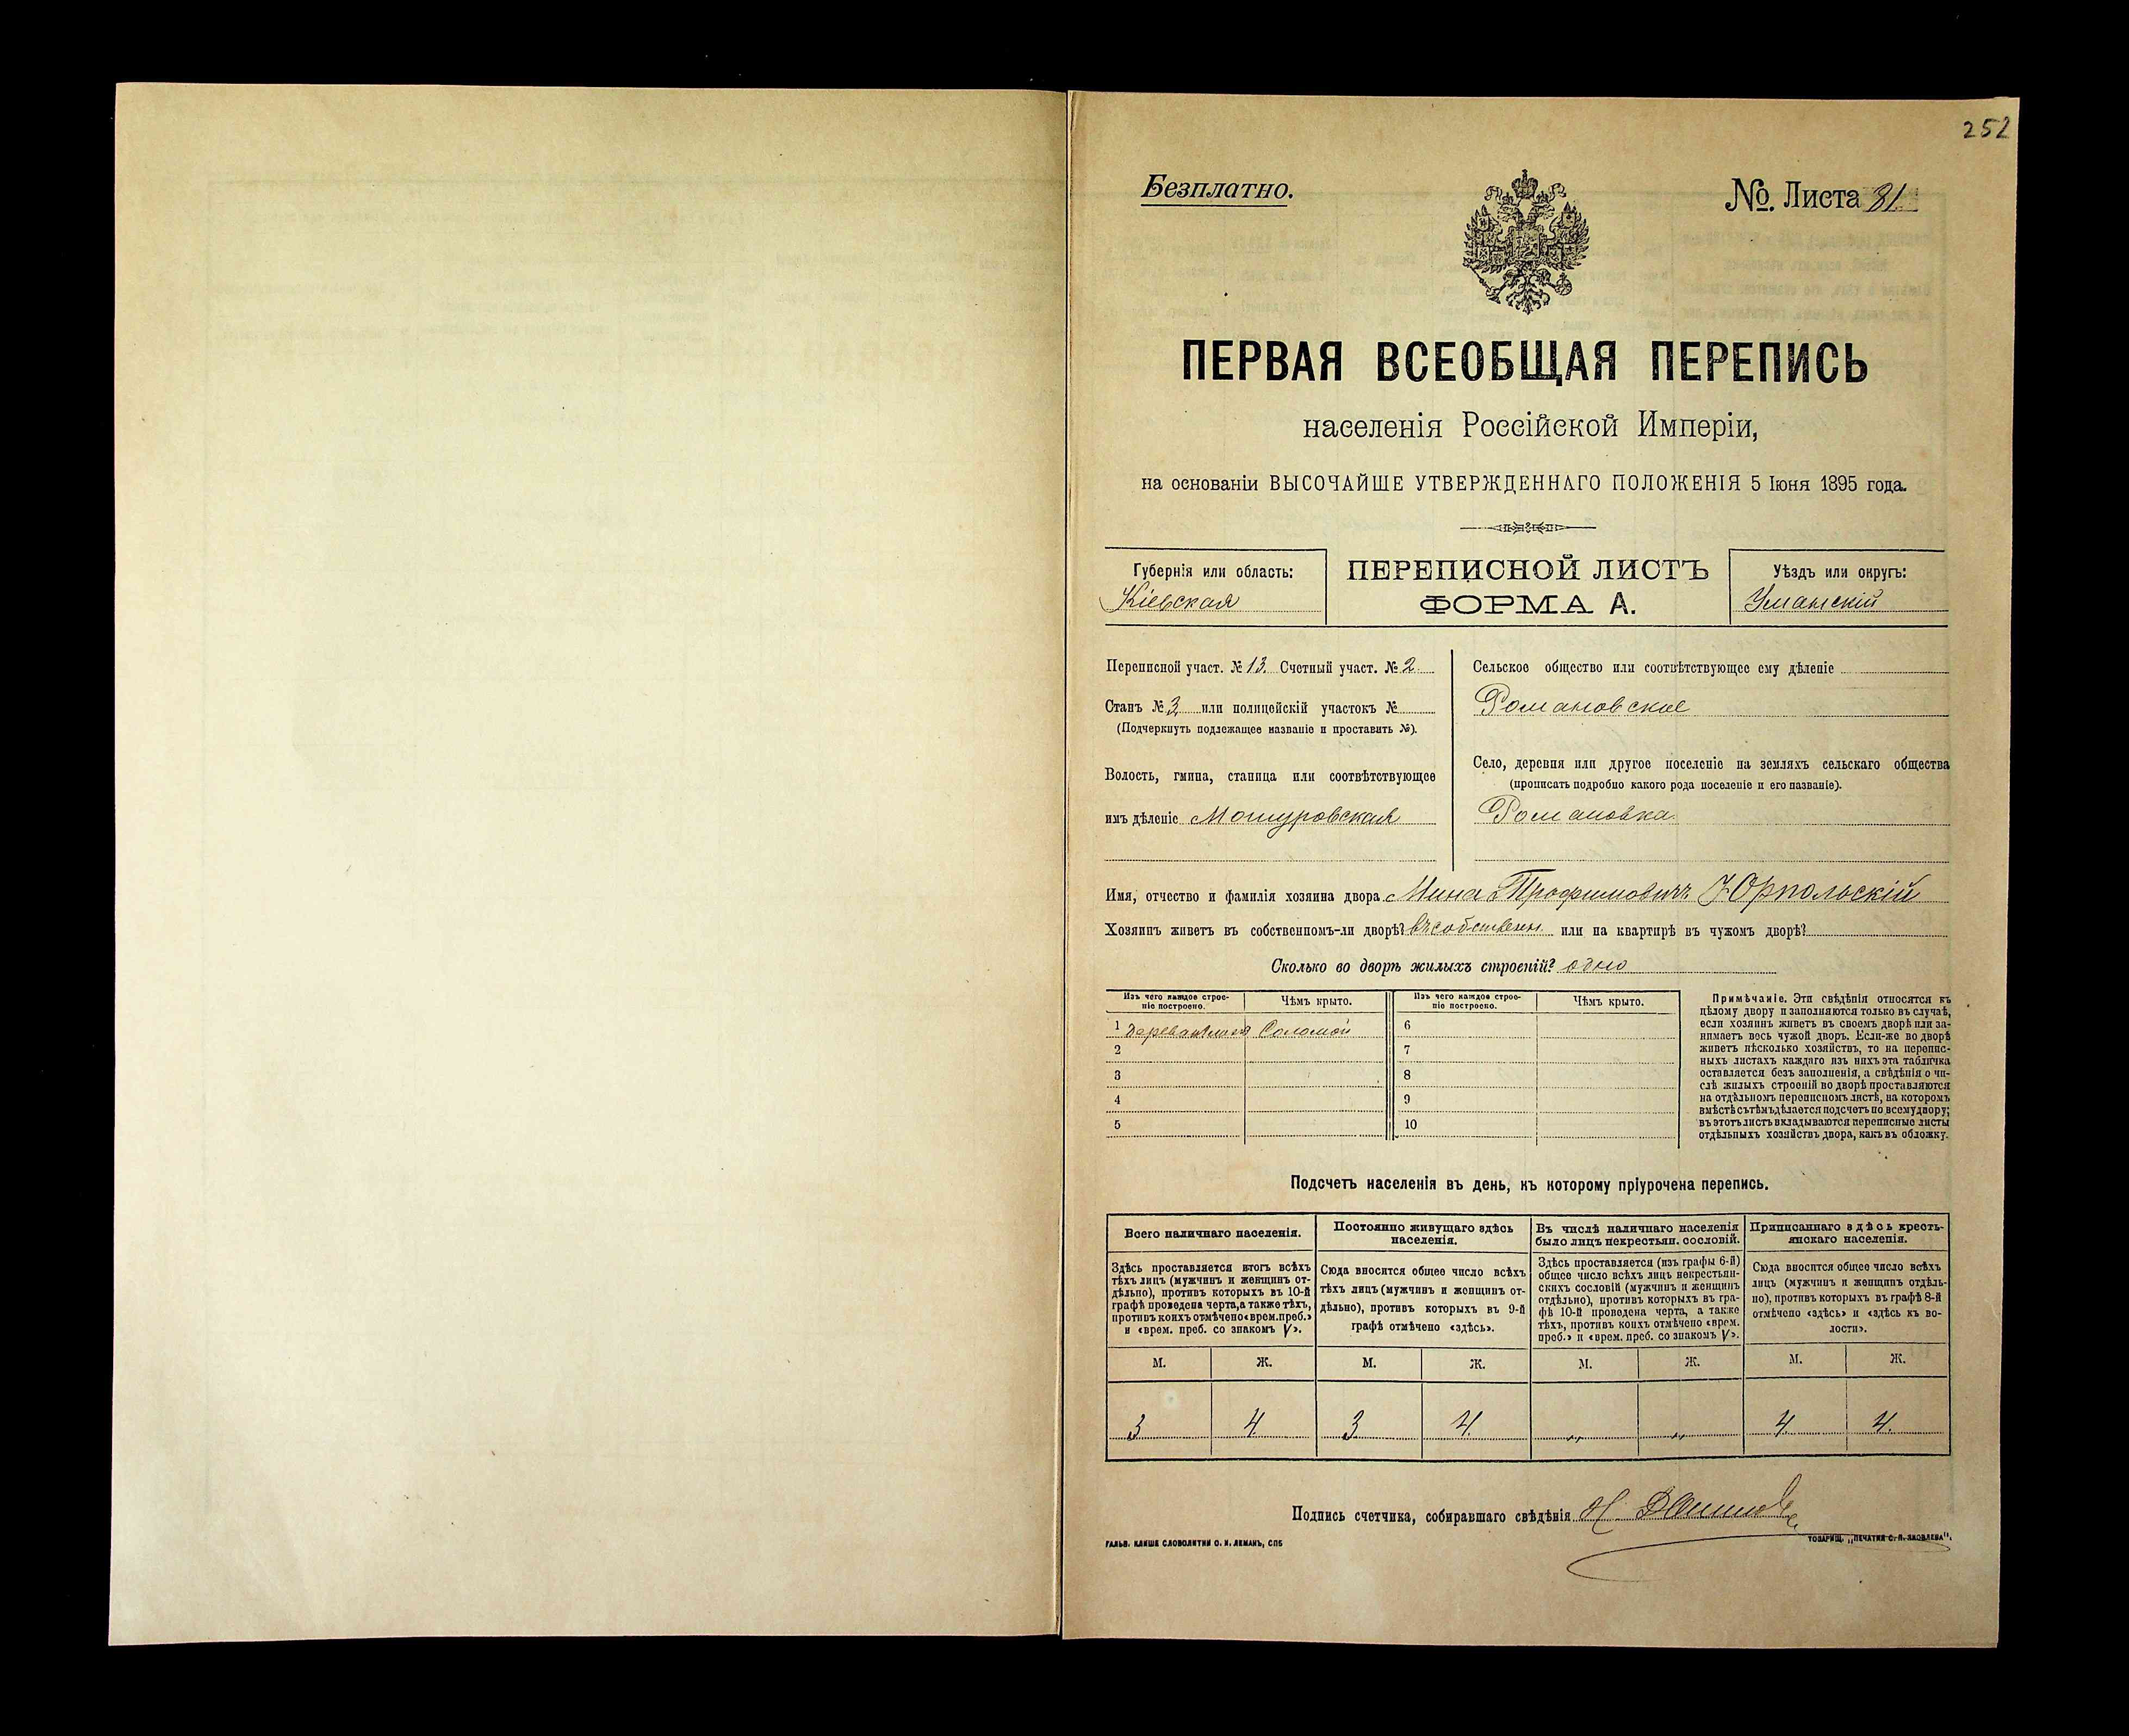 252
Безплатно.
№. Листа 31.
ПЕРВАЯ ВСЕОБЩАЯ ПЕРЕПИСЬ
населенія Россійской Имперіи,
на основаніи ВЫСОЧАЙШЕ УТВЕРЖДЕННАГО ПОЛОЖЕНІЯ 5 Іюня 1895 года.
Губернія или область:
Кіевская
ПЕРЕПИСНОЙ ЛИСТЪ
ФОРМА А.
Уѣздъ или округъ:
Уманскій
Переписной участ. № 13. Счетный участ. № 2.
Станъ № 3 или полицейскій участокъ №
(Подчеркнуть подлежащее названіе и проставить №).
Волость, гмина, станица или соотвѣтствующее
имъ дѣленіе Мошуровская
Сельское общество или соотвѣтствующее ему дѣленіе
Романовское
Село, деревня или другое поселеніе на земляхъ сельскаго общества
(прописать подробно какого рода поселеніе и его названіе).
Романовка
Имя, отчество и фамилія хозяина двора Мина Трофимовичъ Юрпольскій
Хозяинъ живетъ въ собственномъ-ли дворѣ? въ собственн. или на квартирѣ въ чужомъ дворѣ?
Сколько во дворѣ жилыхъ строеній? одно
Изъ чего каждое строе-
ніе построено.
Чѣмъ крыто.
Изъ чего каждое строе-
ніе построено.
Чѣмъ крыто.
1 Соломой
2
3
4
5
6
7
8
9
10
Примѣчаніе. Эти свѣдѣнія относятся къ
цѣлому двору и заполняются только въ случаѣ,
если хозяинъ живетъ въ своемъ дворѣ или за-
нимаетъ весь чужой дворъ. Если-же во дворѣ
живетъ нѣсколько хозяйствъ, то на перепис-
ныхъ листахъ каждаго изъ нихъ эта табличка
оставляется безъ заполненія, а свѣдѣнія о чи-
слѣ жилыхъ строеній во дворѣ проставляются
на отдѣльномъ переписномъ листѣ, на которомъ
вмѣстѣ съ тѣмъ дѣлается подсчетъ по всему двору;
въ этотъ листъ вкладываются переписные листы
отдѣльныхъ хозяйствъ двора, какъ въ обложку.
Подсчетъ населенія въ день, къ которому пріурочена перепись.
Всего наличнаго населенія.
Здѣсь проставляется итогъ всѣхъ
тѣхъ лицъ (мужчинъ и женщинъ от-
дѣльно), противъ которыхъ въ 10-й
графѣ проведена черта, а также тѣхъ,
противъ коихъ отмѣчено «врем. преб.»
и «врем. преб. со знакомъ V».
Постоянно живущаго здѣсь
населенія.
Сюда вносится общее число всѣхъ
тѣхъ лицъ (мужчинъ и женщинъ от-
дѣльно), противъ которыхъ въ 9-й
графѣ отмѣчено «здѣсь».
Въ числѣ наличнаго населенія
было лицъ некрестьян. сословій.
Здѣсь проставляется (изъ графы 6-й)
общее число всѣхъ лицъ некрестьян-
скихъ сословій (мужчинъ и женщинъ
отдѣльно), противъ которыхъ въ гра-
фѣ 10-й проведена черта, а также
тѣхъ, противъ коихъ отмѣчено «врем.
преб.» и «врем. преб. со знакомъ V».
Приписаннаго здѣсь кресть-
янскаго населенія.
Сюда вносится общее число всѣхъ
лицъ (мужчинъ и женщинъ отдѣль-
но), противъ которыхъ въ графѣ 8-й
отмѣчено «здѣсь» и «здѣсь къ во-
лости».
М. Ж. М. Ж. М. Ж. М. Ж.
3 4 3 4 „ „ 4 4
Подпись счетчика, собиравшаго свѣдѣнія
ГАЛЬВ. КЛИШЕ СЛОВОЛИТНИ О. И. ЛЕМАНЪ, СПБ
ТОВАРИЩ. „ПЕЧАТНЯ С. П. ЯКОВЛЕВА“.